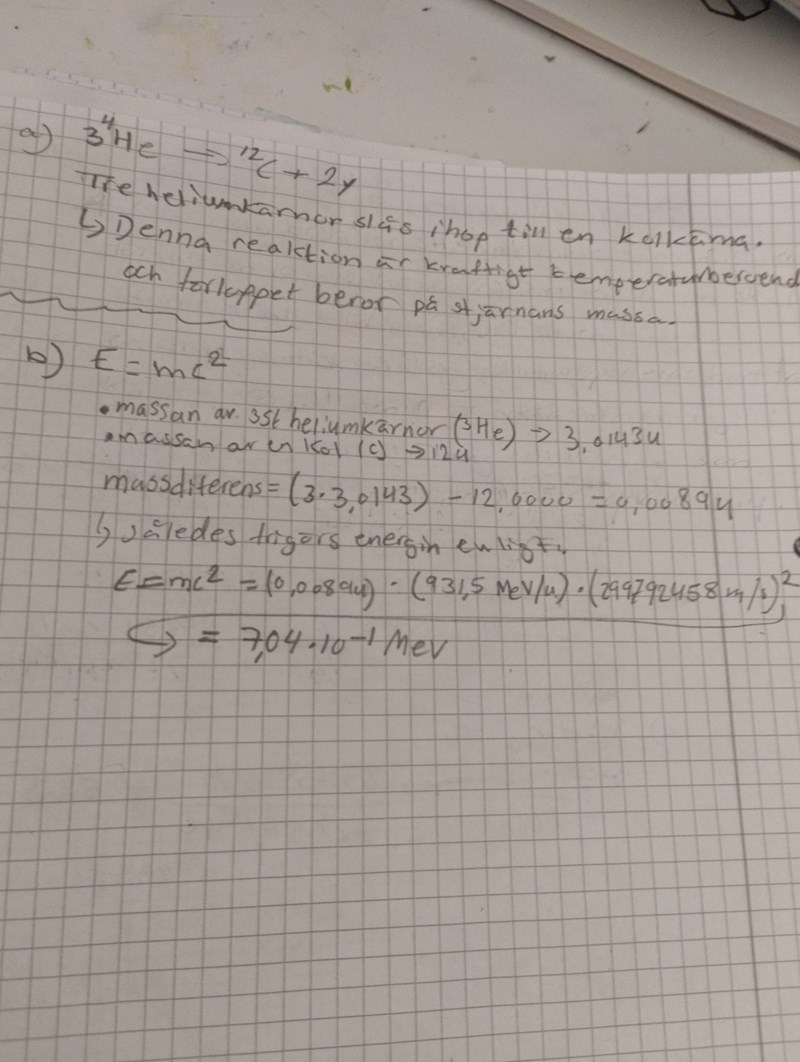 a) 3⁴He → ¹²C + 2γ
Tre heliumkärnor slås ihop till en kolkärna.
↳ Denna reaktion är kraftigt temperaturberoend
och förloppet beror på stjärnans massa.
b) E = mc²
• massan av 3st heliumkärnor (³He) → 3,0143u
• massan av en kol (c) → 12u
massdiferens = (3·3,0143) - 12,0000 = 0,0089u
↳ således frigörs energin enligt,
E = mc² = (0,0089u) · (931,5 MeV/u) · (299792458 m/s)²
↪ = 7,04·10⁻¹ MeV